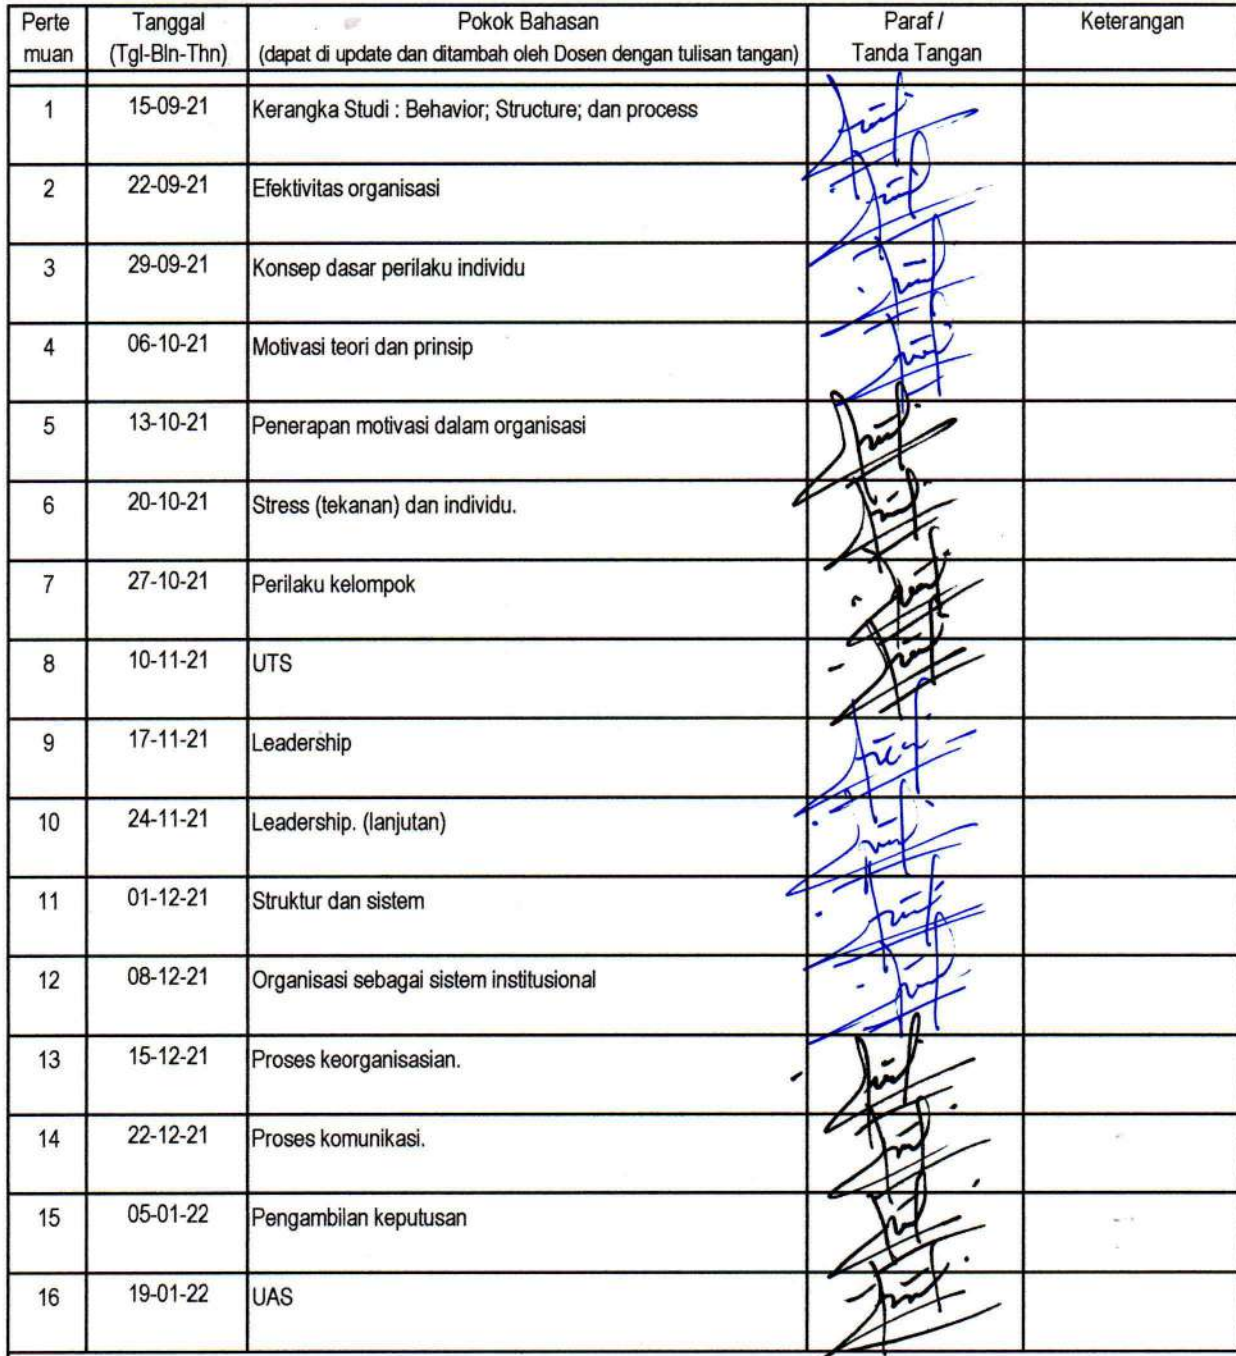 Perte muan Tanggal (Tgl-Bln-Thn) Pokok Bahasan (dapat di update dan ditambah oleh Dosen dengan tulisan tangan) Paraf / Tanda Tangan Keterangan
1 15-09-21 Kerangka Studi : Behavior; Structure; dan process
2 22-09-21 Efektivitas organisasi
3 29-09-21 Konsep dasar perilaku individu
4 06-10-21 Motivasi teori dan prinsip
5 13-10-21 Penerapan motivasi dalam organisasi
6 20-10-21 Stress (tekanan) dan individu.
7 27-10-21 Perilaku kelompok
8 10-11-21 UTS
9 17-11-21 Leadership
10 24-11-21 Leadership. (lanjutan)
11 01-12-21 Struktur dan sistem
12 08-12-21 Organisasi sebagai sistem institusional
13 15-12-21 Proses keorganisasian.
14 22-12-21 Proses komunikasi.
15 05-01-22 Pengambilan keputusan
16 19-01-22 UAS